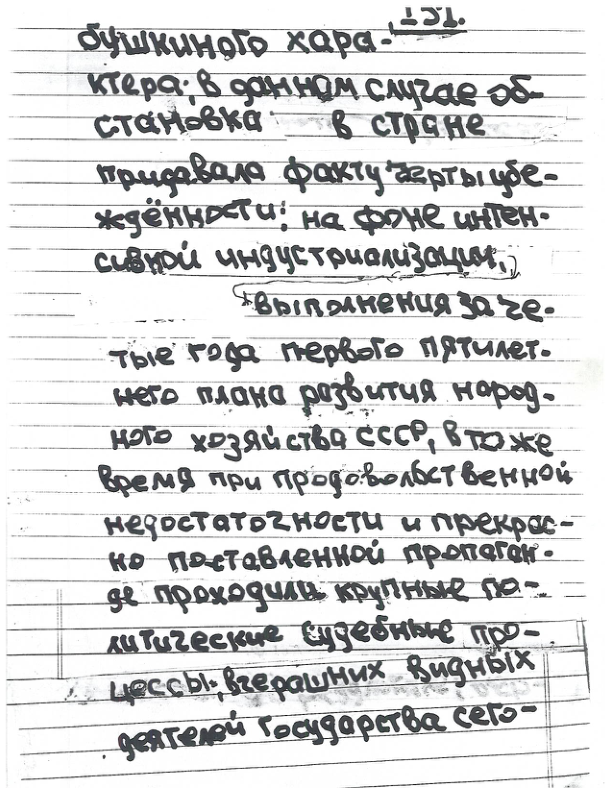 151.
бушкиного хара-
ктера; в данном случае об-
становка в стране
придавала факту черты убе-
ждённости; на фоне интен-
сивной индустриализации,
выполнения за че-
тые года первого пятилет-
него плана развития народ-
ного хозяйства СССР, в то же
время при продовольственной
недостаточности и прекрас-
но поставленной пропаган-
де проходили крупные по-
литические судебные про-
цессы; вчерашних видных
деятелей государства сего-